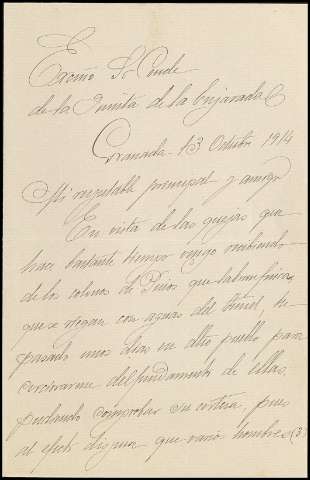 Excmo Sr Conde
de la Quinta de la Enjarada
Granada 13 Octubre 1914
Mi respetable principal y amigo
En vista de las quejas que
hace bastante tiempo vengo recibiendo
de los colonos de Pinos que labran fincas,
que se riegan con aguas del tunel, he
pasado unos dias en dicho pueblo para
cerciorarme del fundamento de ellas,
pudiendo comprobar su certeza, pues
al efecto dispuse que varios hombres